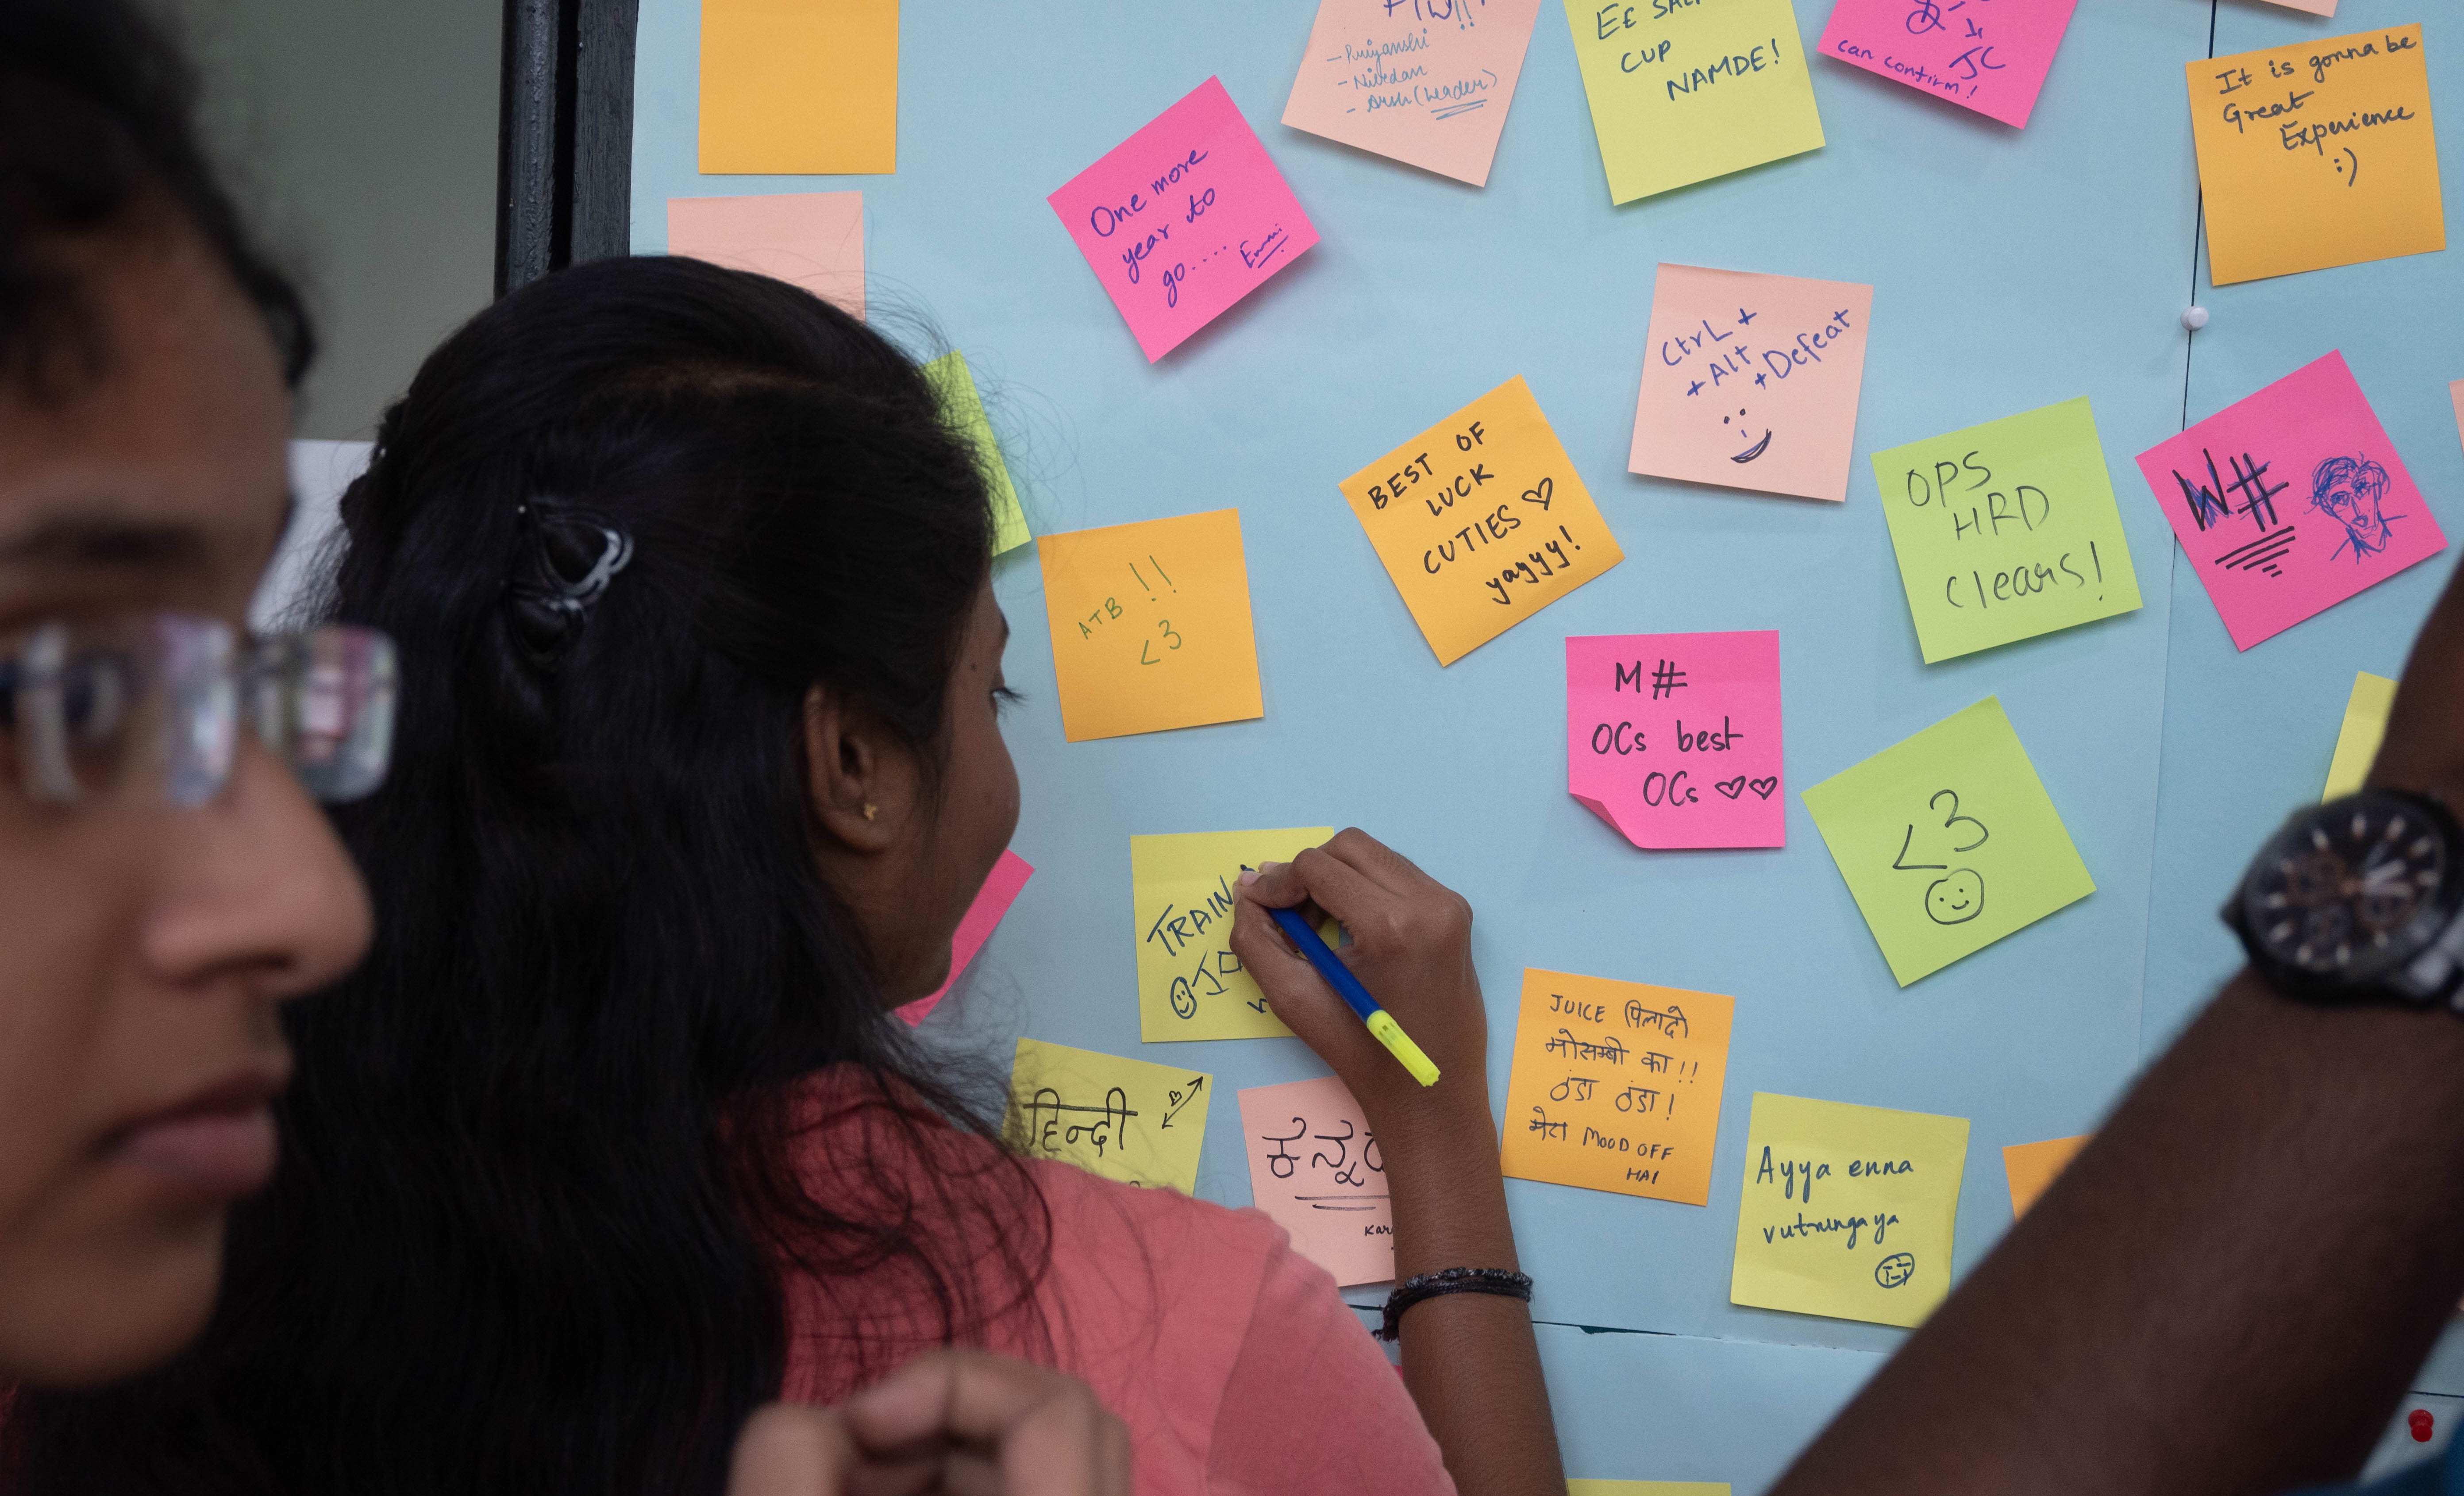 - Priyanshi
- Nivedan
- Arsh (Leader)
EE SALA
CUP
NAMDE!
JC
can confirm!
It is gonna be
Great
Experience
:)
One more
year to
go....
CtrL +
+ Alt
+ Defeat
BEST OF
LUCK
CUTIES ♡
yayyy!
OPS
HRD
Clears!
W#
ATB !!
<3
M#
OCs best
OCs ♡♡
<3
TRAIN
हिन्दी
ಕನ್ನಡ
JUICE पिलादो
मोसम्बी का!!
ठंडा ठंडा!
मेरा MOOD OFF
HAI
Ayya enna
vutrunga ya